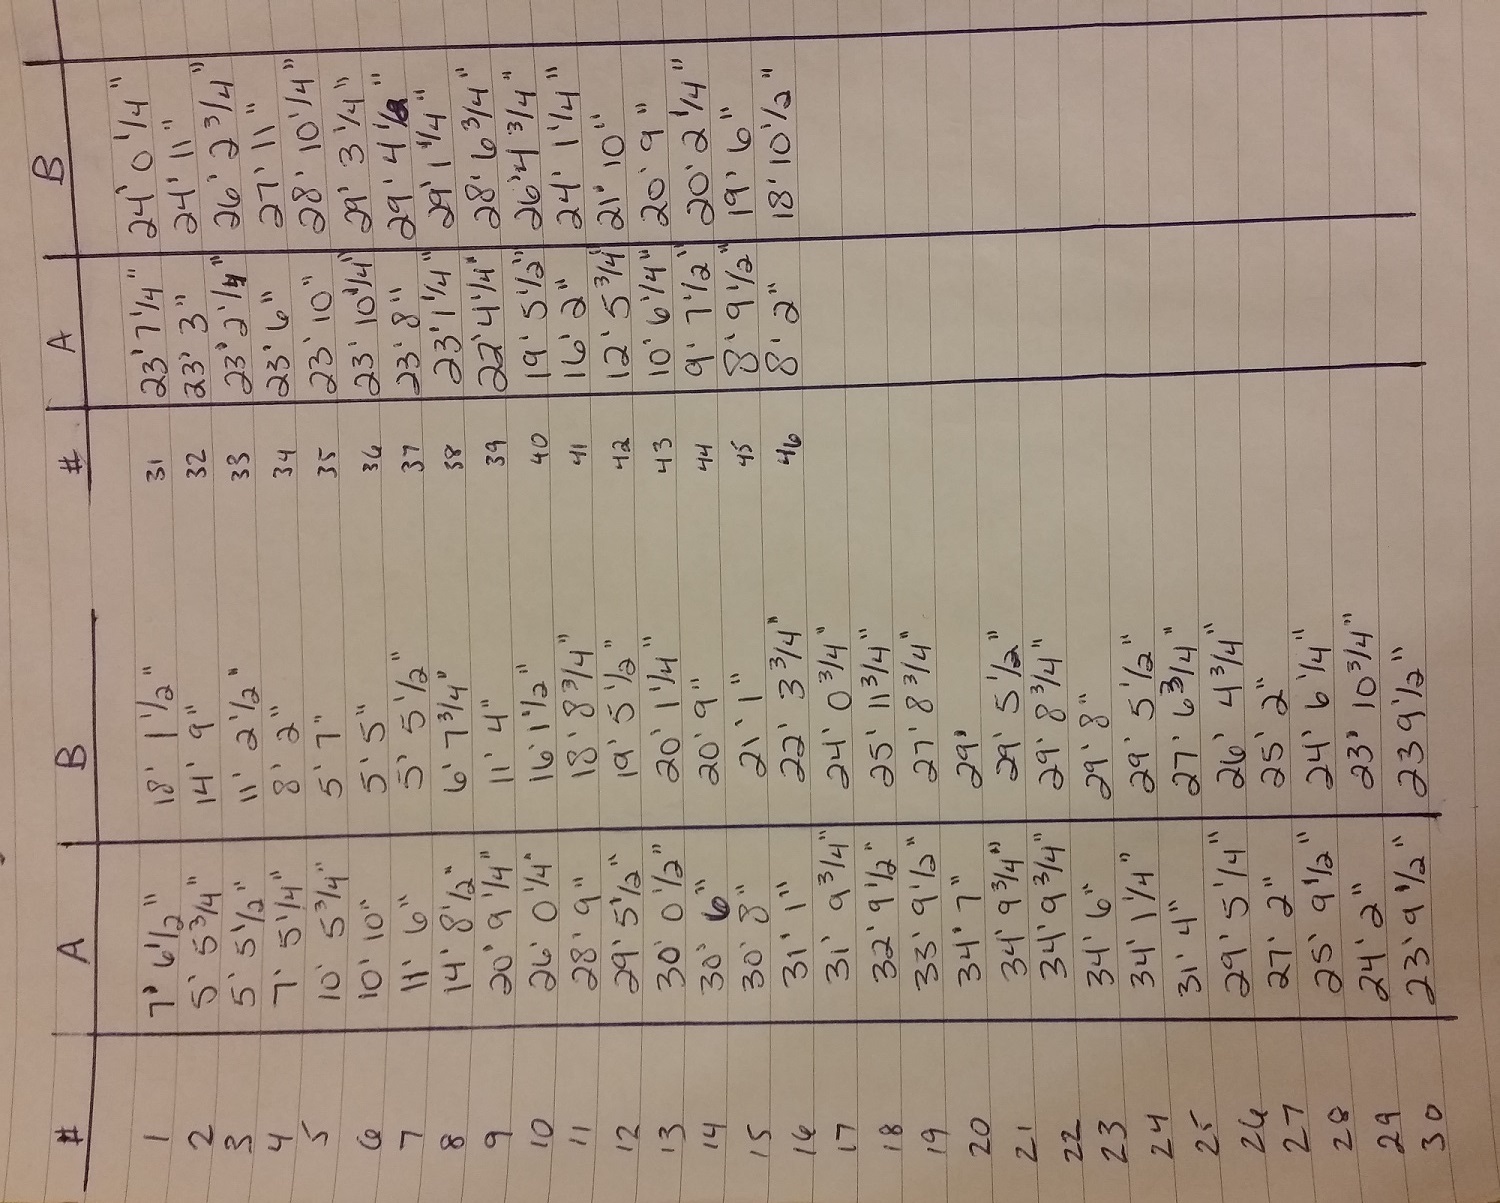 # A B # A B
1 7' 6 1/2" 18' 1 1/2" 31 23' 7 1/4" 24' 0 1/4"
2 5' 5 3/4" 14' 9" 32 23' 3" 24' 11"
3 5' 5 1/2" 11' 2 1/2" 33 23' 2 1/4" 26' 2 3/4"
4 7' 5 1/4" 8' 2" 34 23' 6" 27' 11"
5 10' 5 3/4" 5' 7" 35 23' 10" 28' 10 1/4"
6 10' 10" 5' 5" 36 23' 10 1/4" 29' 3 1/4"
7 11' 6" 5' 5 1/2" 37 23' 8" 29' 4 1/2"
8 14' 8 1/2" 6' 7 3/4" 38 23' 1 1/4" 29' 1 1/4"
9 20' 9 1/4" 11' 4" 39 22' 4 1/4" 28' 6 3/4"
10 26' 0 1/4" 16' 1 1/2" 40 19' 5 1/2" 26' 4 3/4"
11 28' 9" 18' 8 3/4" 41 16' 2" 24' 1 1/4"
12 29' 5 1/2" 19' 5 1/2" 42 12' 5 3/4" 21' 10"
13 30' 0 1/2" 20' 1 1/4" 43 10' 6 1/4" 20' 9"
14 30' 6" 20' 9" 44 9' 7 1/2" 20' 2 1/4"
15 30' 8" 21' 1" 45 8' 9 1/2" 19' 6"
16 31' 1" 22' 3 3/4" 46 8' 2" 18' 10 1/2"
17 31' 9 3/4" 24' 0 3/4"
18 32' 9 1/2" 25' 11 3/4"
19 33' 9 1/2" 27' 8 3/4"
20 34' 7" 29'
21 34' 9 3/4" 29' 5 1/2"
22 34' 9 3/4" 29' 8 3/4"
23 34' 6" 29' 8"
24 34' 1 1/4" 29' 5 1/2"
25 31' 4" 27' 6 3/4"
26 29' 5 1/4" 26' 4 3/4"
27 27' 2" 25' 2"
28 25' 9 1/2" 24' 6 1/4"
29 24' 2" 23' 10 3/4"
30 23' 9 1/2" 23 9 1/2"